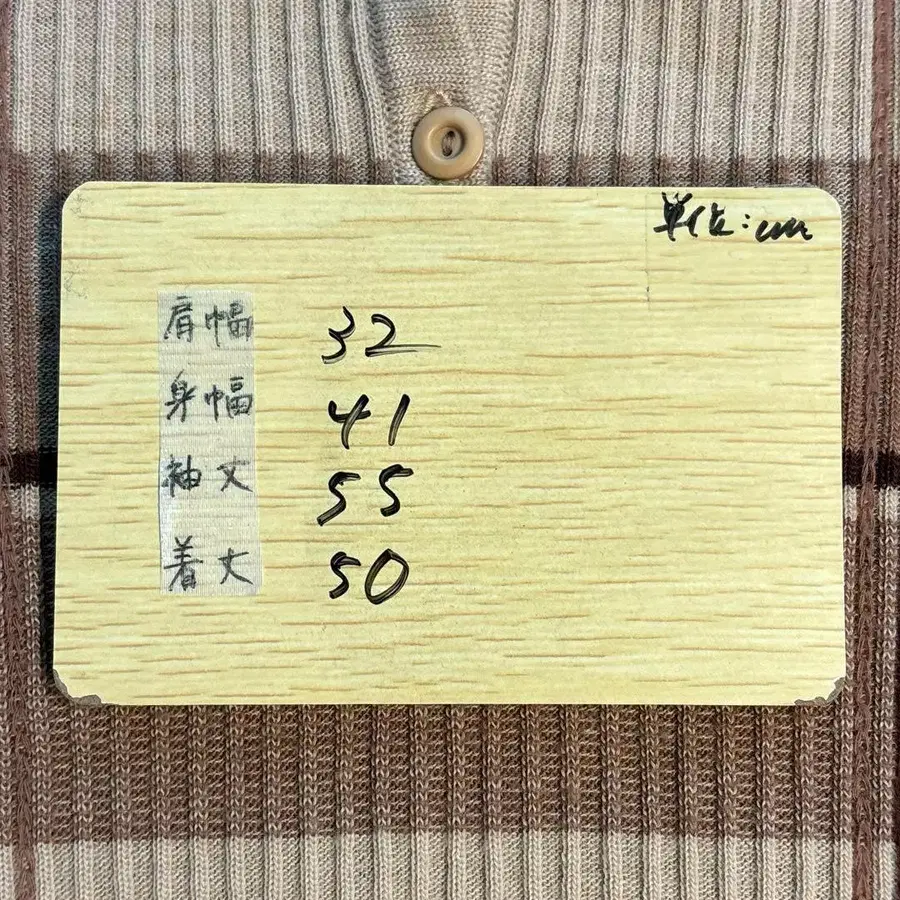 単位:cm
肩幅 32
身幅 41
袖丈 55
着丈 50